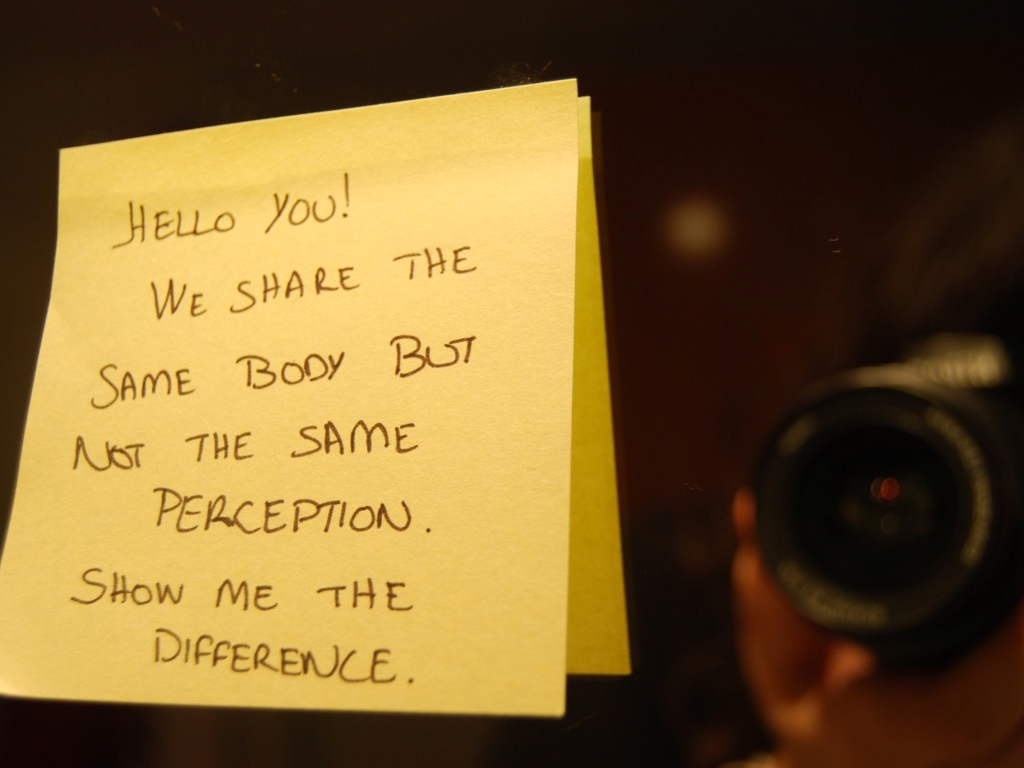 HELLO YOU!
WE SHARE THE
SAME BODY BUT
NOT THE SAME
PERCEPTION.
SHOW ME THE
DIFFERENCE.